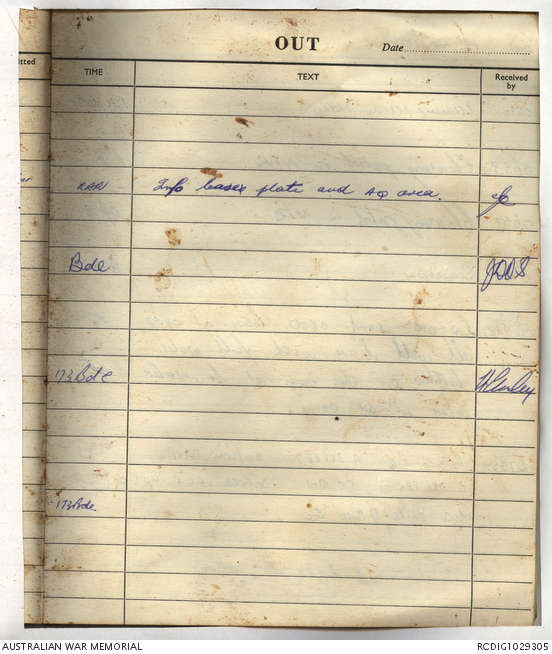 OUT
Date
itted
TIME
TEXT
Received by
RAR Info bases plate and HQ area.
Bde JDDS
173 Bde
173 Bde
AUSTRALIAN WAR MEMORIAL
RCDIG1029305